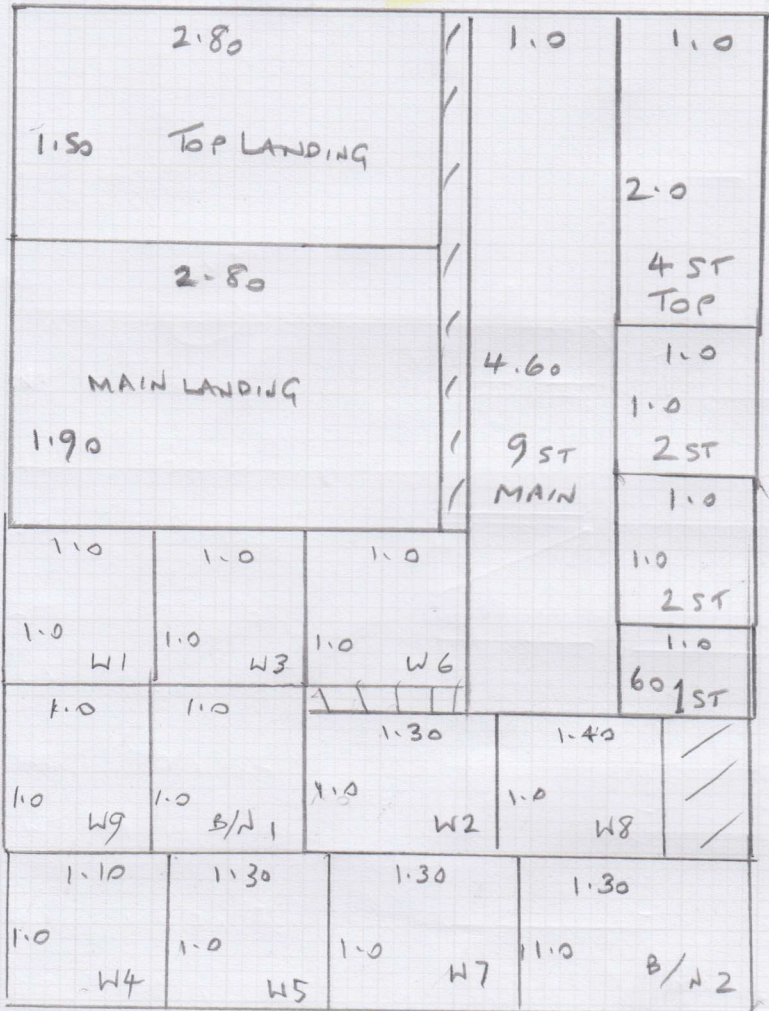 2.80
1.50 TOP LANDING
2.80
MAIN LANDING
1.90
1.0
4.60
9 ST
MAIN
1.0
2.0
4 ST
TOP
1.0
1.0
2 ST
1.0
1.0
2 ST
1.0
60 1 ST
1.0
1.0 W1
1.0
1.0 W3
1.0
1.0 W6
1.0
1.0 W9
1.0
1.0 B/N 1
1.30
1.0 W2
1.40
1.0 W8
1.10
1.0 W4
1.30
1.0 W5
1.30
1.0 W7
1.30
1.0 B/N 2